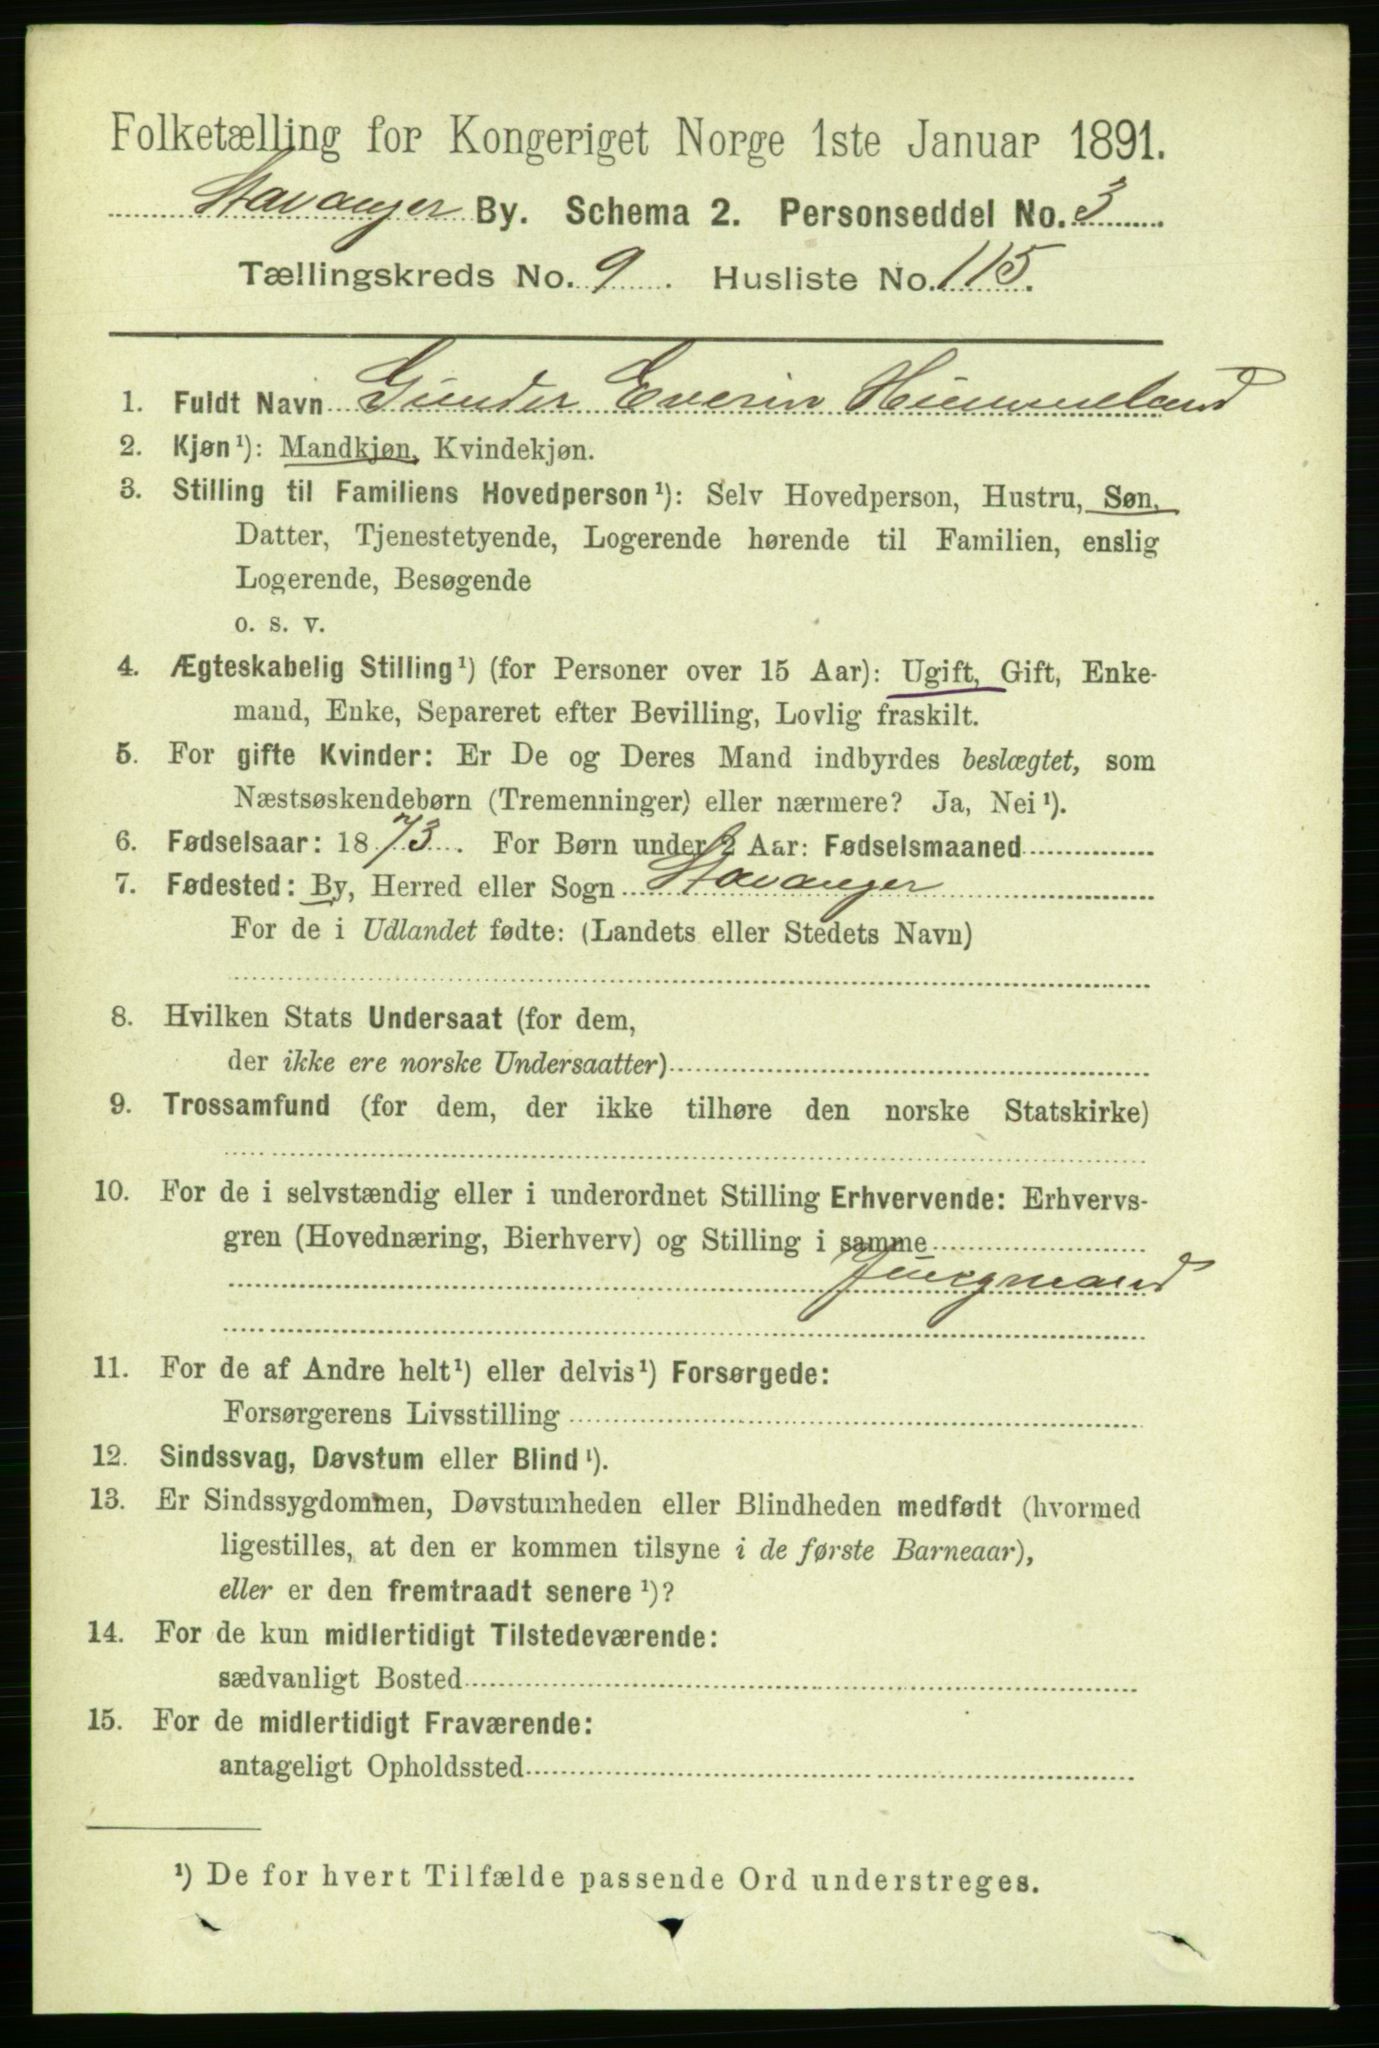 Folketælling for Kongeriget Norge 1ste Januar 1891.
Stavanger By. Schema 2. Personseddel No. 3
Tællingskreds No. 9. Husliste No. 115.
1. Fuldt Navn Gunder Everin Hummeland
2. Kjøn¹): Mandkjøn, Kvindekjøn.
3. Stilling til Familiens Hovedperson¹): Selv Hovedperson, Hustru, Søn,
Datter, Tjenestetyende, Logerende hørende til Familien, enslig
Logerende, Besøgende
o. s. v.
4. Ægteskabelig Stilling¹) (for Personer over 15 Aar): Ugift, Gift, Enke-
mand, Enke, Separeret efter Bevilling, Lovlig fraskilt.
5. For gifte Kvinder: Er De og Deres Mand indbyrdes beslægtet, som
Næstsøskendebørn (Tremenninger) eller nærmere? Ja, Nei¹).
6. Fødselsaar: 1873. For Børn under 2 Aar: Fødselsmaaned
7. Fødested: By, Herred eller Sogn Stavanger
For de i Udlandet fødte: (Landets eller Stedets Navn)
8. Hvilken Stats Undersaat (for dem,
der ikke ere norske Undersaatter)
9. Trossamfund (for dem, der ikke tilhøre den norske Statskirke)
10. For de i selvstændig eller i underordnet Stilling Erhvervende: Erhvervs-
gren (Hovednæring, Bierhverv) og Stilling i samme
Jungmand
11. For de af Andre helt¹) eller delvis¹) Forsørgede:
Forsørgerens Livsstilling
12. Sindssvag, Døvstum eller Blind¹).
13. Er Sindssygdommen, Døvstumheden eller Blindheden medfødt (hvormed
ligestilles, at den er kommen tilsyne i de første Barneaar),
eller er den fremtraadt senere¹)?
14. For de kun midlertidigt Tilstedeværende:
sædvanligt Bosted
15. For de midlertidigt Fraværende:
antageligt Opholdssted
¹) De for hvert Tilfælde passende Ord understreges.